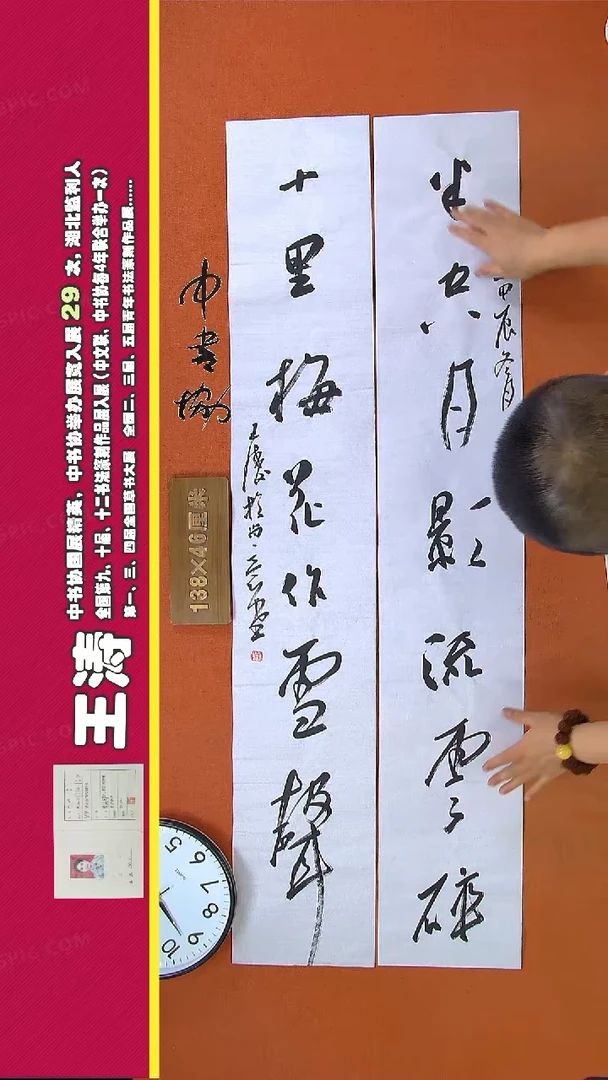 中书协国展精英，中书协举办展览入展 29 次，湖北监利人
全国第九、十届、十二书法篆刻作品展入展（中文联、中书协每4年联合举办一次）
第一、三、四届全国草书大展 全国二、三届、五届青年书法篆刻作品展......
王涛
甲辰冬月
半空月影流雲碎
十里梅花作雪聲
中書協
138×46厘米
5
6
7
8
9
10